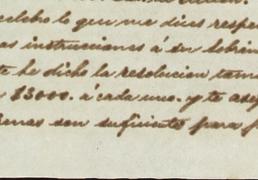 celebro lo que me dices respe
as instrucciones á su sobrin
te he dicho la resolucion tom
$ 13000. á cada uno. y te ase
son suficiente para p